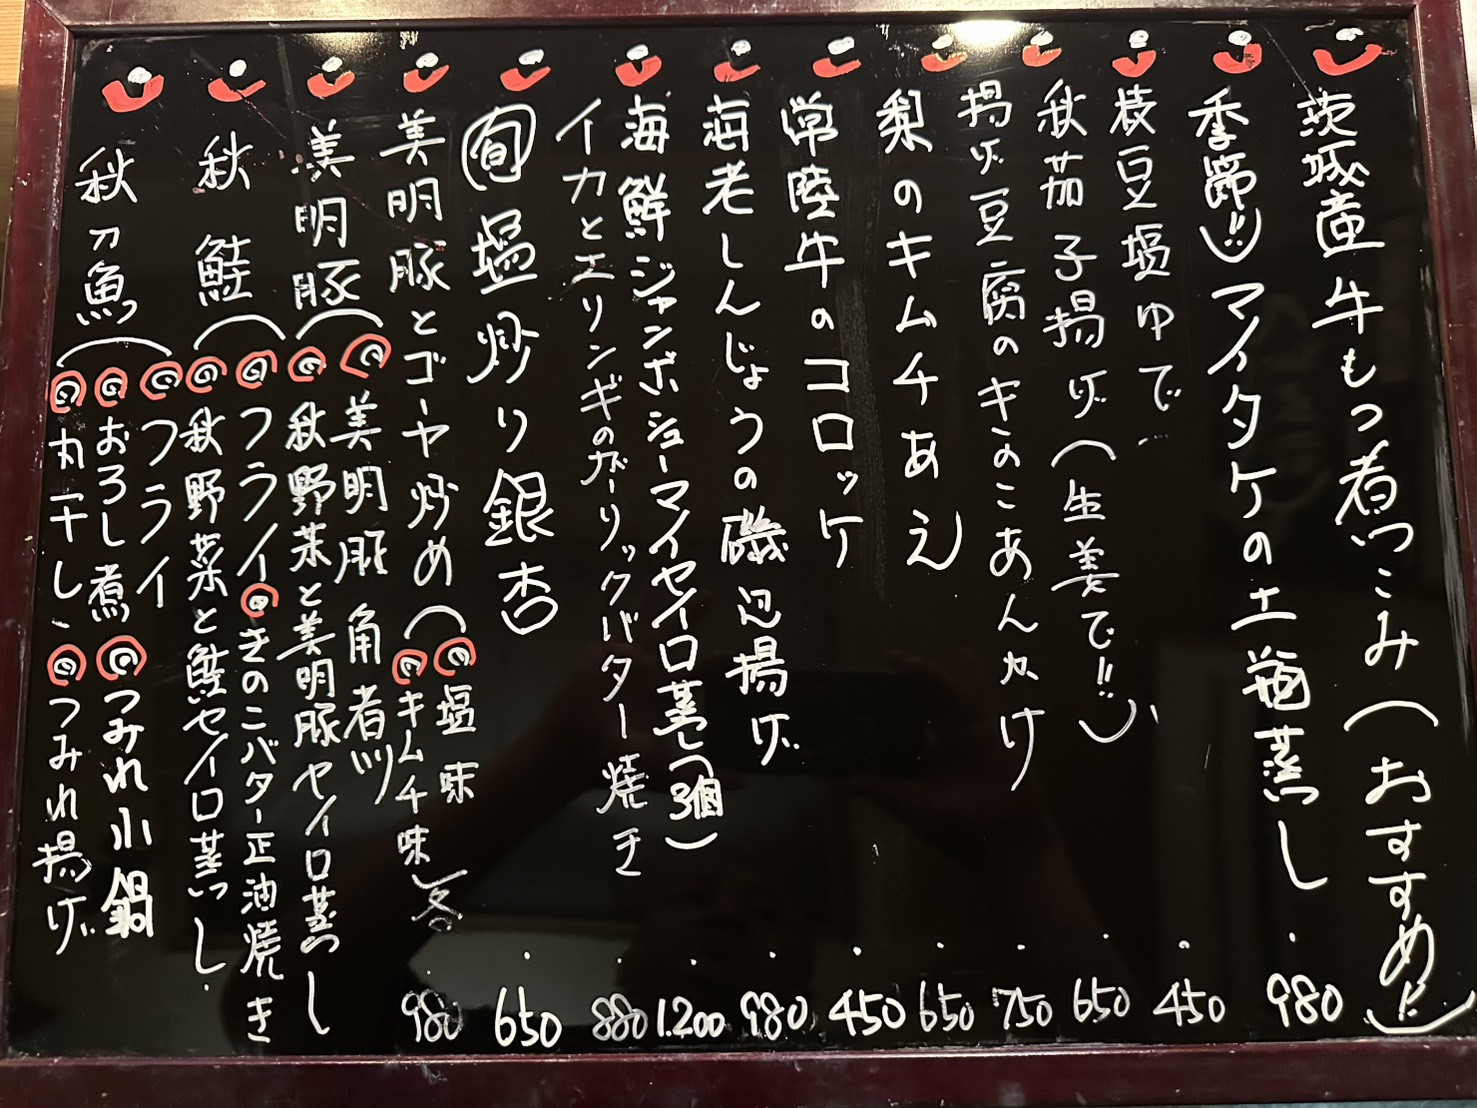 茨城産牛もつ煮っこみ(おすすめ!!)
季節!!マイタケの土瓶蒸し 980
枝豆塩ゆで 450
秋茄子揚げ(生姜で!!) 650
揚げ豆腐のきのこあんかけ 750
梨のキムチあえ 650
常陸牛のコロッケ 450
海老しんじょうの磯辺揚げ 980
海鮮ジャンボシューマイセイロ蒸し(3個) 1.200
イカとエリンギのガーリックバター焼き 880
旬塩炒り銀杏 650
美明豚とゴーヤ炒め(塩味
キムチ味)各 980
美明豚(美明豚角煮
秋野菜と美明豚セイロ蒸し
秋鮭(フライ きのこバター正油焼き
秋野菜と鮭セイロ蒸し
秋刀魚(フライ
おろし煮 つみれ小鍋
丸干し つみれ揚げ